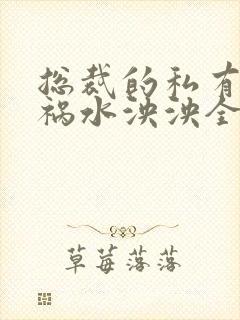 总裁的私有
祸水泱泱全
草莓落落